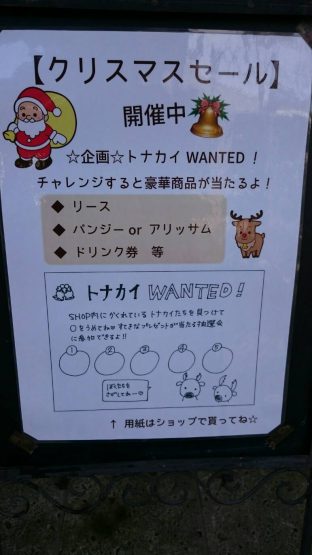 【クリスマスセール】
開催中
☆企画☆トナカイ WANTED ！
チャレンジすると豪華商品が当たるよ！
◆ リース
◆ パンジー or アリッサム
◆ ドリンク券 等
トナカイ WANTED！
SHOP内にかくれているトナカイたちを見つけて
○をうめてね♡すてきなプレゼントが当たる抽選会
に参加できるよ!!
① ② ③ ④ ⑤
ぼくたちを
さがしてねー♡
↑ 用紙はショップで貰ってね☆